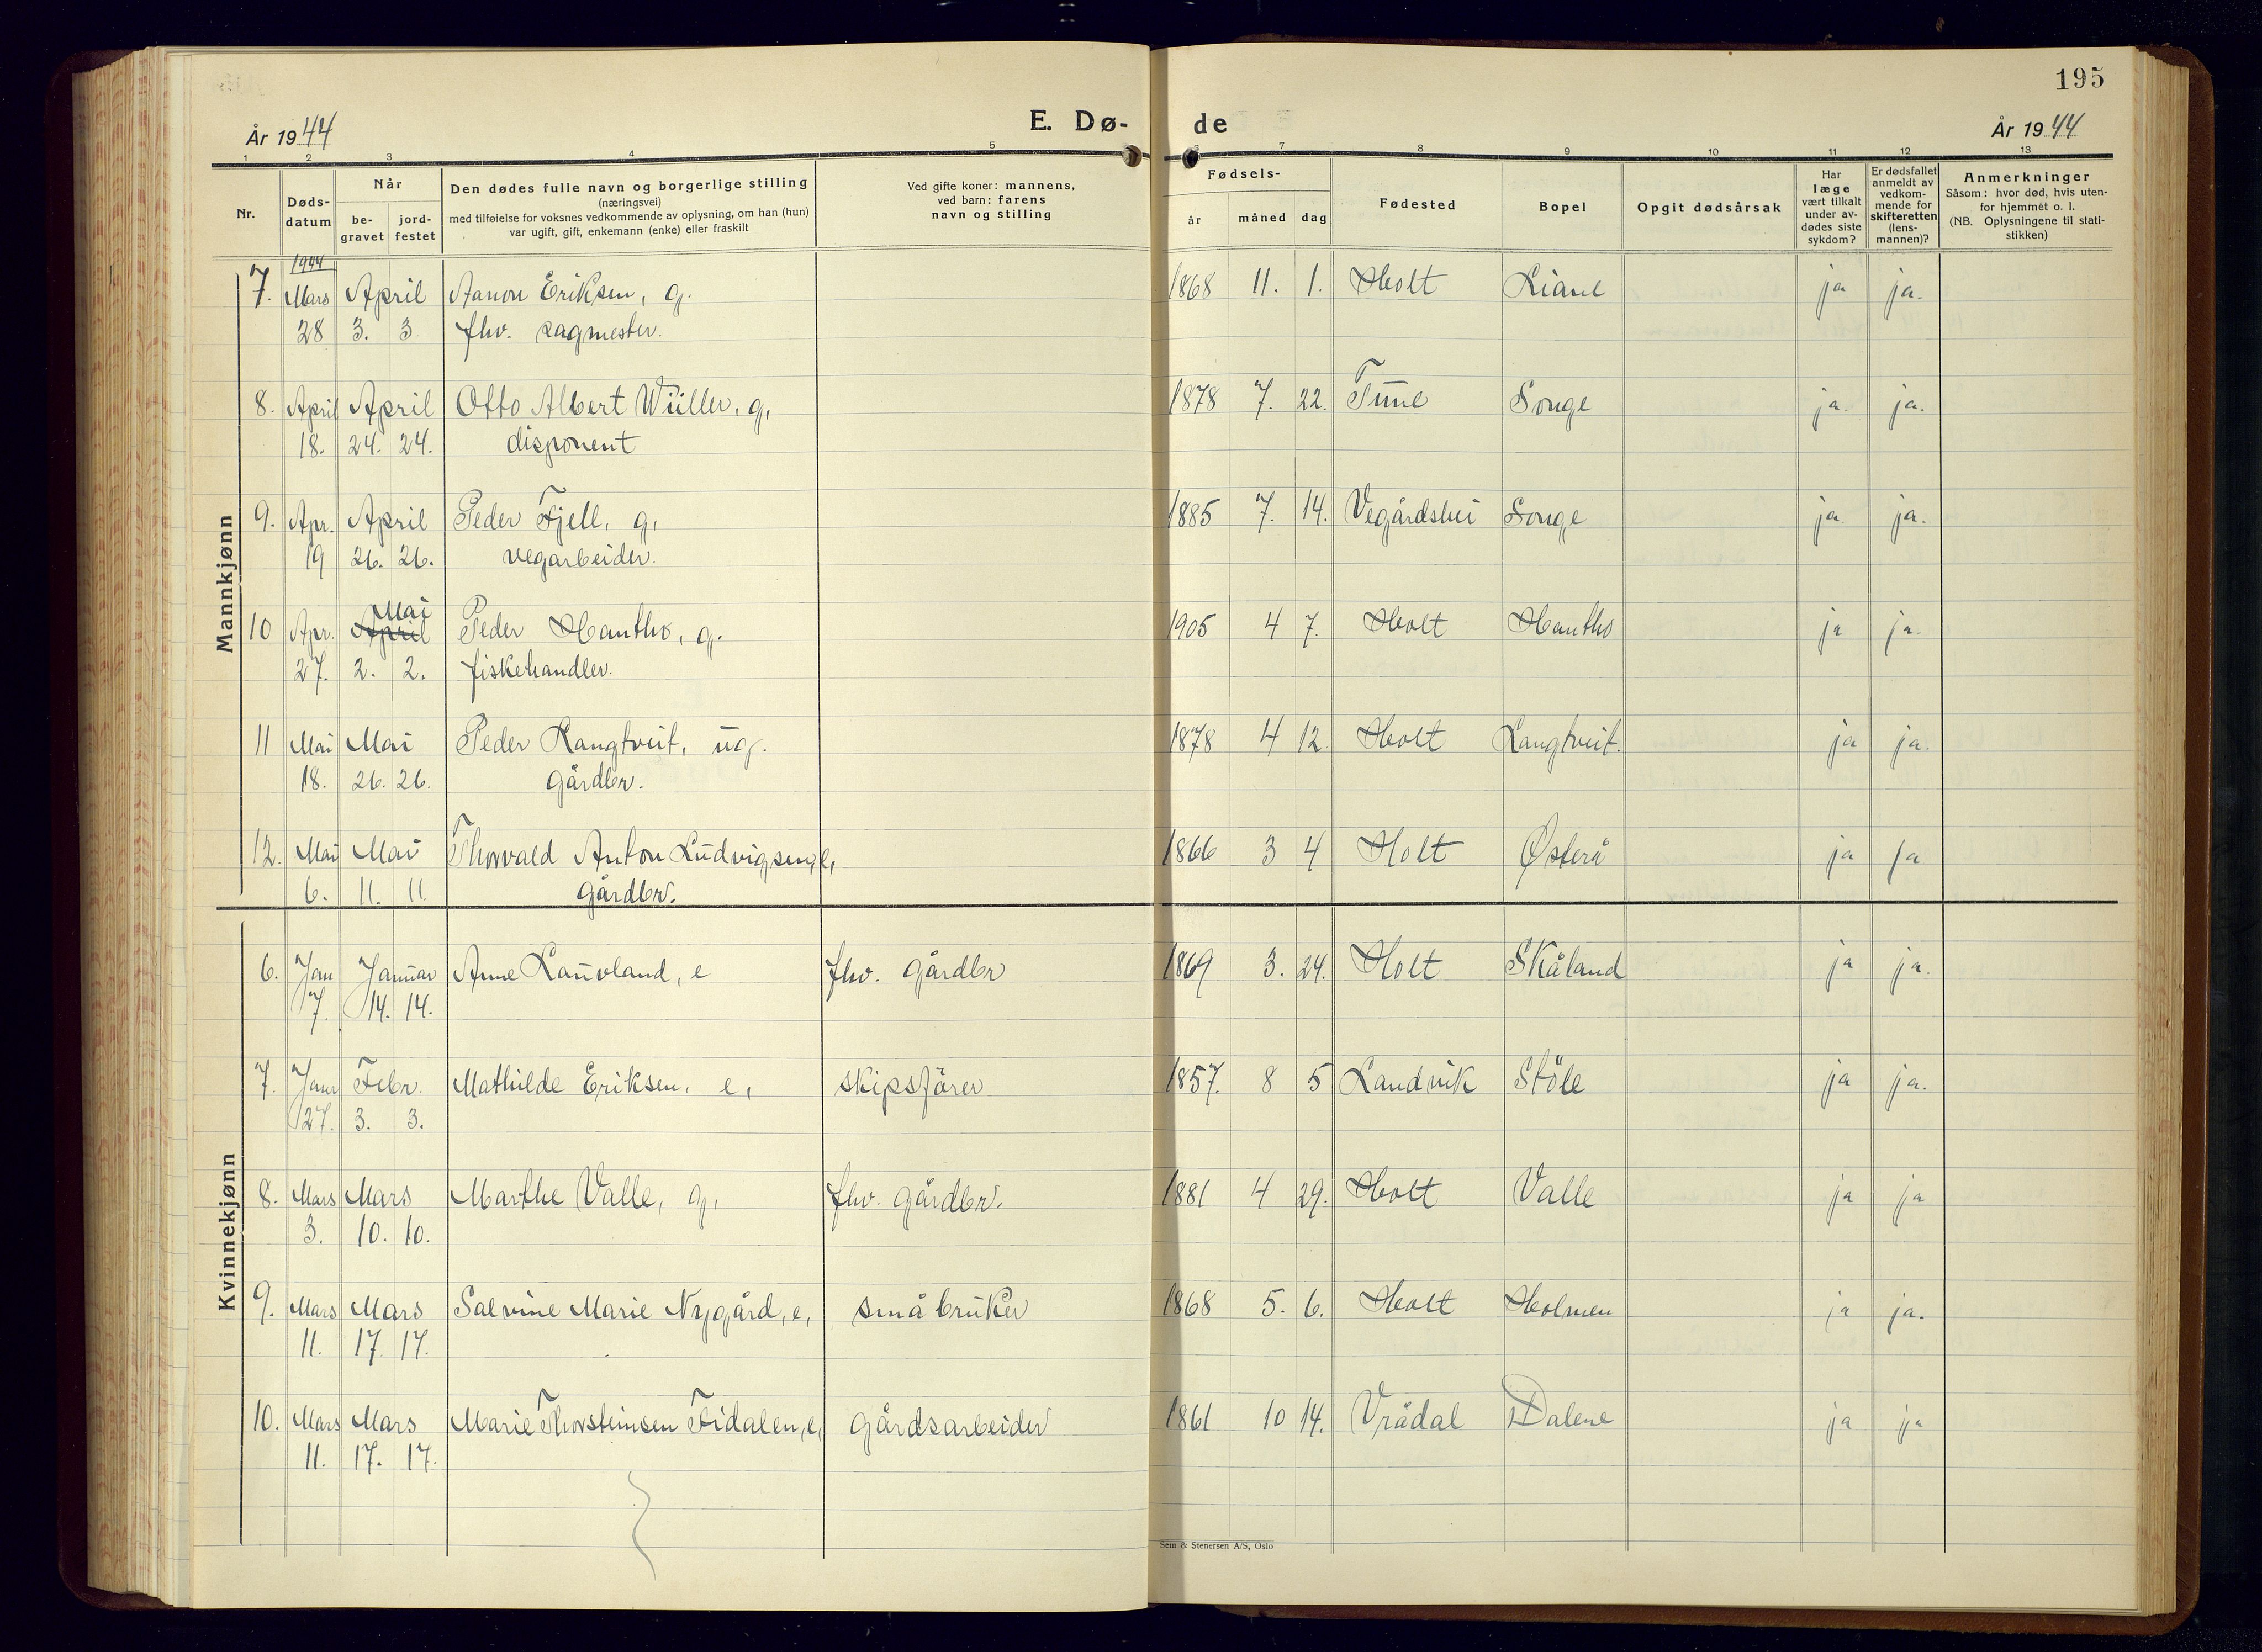 195
År 1944
E. Dø-
de
År 1944
1 2 3 4 5 6 7 8 9 10 11 12 13
Nr.
Døds-
datum
Når
be-
gravet
jord-
festet
Den dødes fulle navn og borgerlige stilling
(næringsvei)
med tilføielse for voksnes vedkommende av oplysning, om han (hun)
var ugift, gift, enkemann (enke) eller fraskilt
Ved gifte koner: mannens,
ved barn: farens
navn og stilling
Fødsels-
år måned dag
Fødested
Bopel
Opgit dødsårsak
Har
læge
vært tilkalt
under av-
dødes siste
sykdom?
Er dødsfallet
anmeldt av
vedkom-
mende for
skifteretten
(lens-
mannen)?
Anmerkninger
Såsom: hvor død, hvis uten-
for hjemmet o. l.
(NB. Oplysningene til stati-
stikken)
Mannkjønn
1944
7. Mars April Aanon Eriksen, g. 1868 11. 1. Holt Liane ja ja.
28 3. 3 fhv. sagmester.
8. April April Otto Albert Wüller, g, 1878 7. 22. Tune Songe ja. ja.
18. 24. 24. disponent
9. Apr. April Peder Fjell, g, 1885 7. 14. Vegårdshei Songe ja ja.
19 26. 26. vegarbeider.
Mai
10 Apr. April Peder Hantho, g. 1905 4 7. Holt Hantho ja ja.
27. 2. 2. fiskehandler.
11 Mai Mai Peder Langtveit, ug. 1878 4 12. Holt Langtveit. ja ja.
18. 26. 26. gårdbr.
12. Mai Mai Thorvald Anton Ludvigsen, e, 1866 3 4 Holt Østerå ja ja
6. 11. 11. gårdbr.
Kvinnekjønn
6. Jan Januar Anne Lauvland, e fhv. gårdbr 1869 3. 24. Holt Skåland ja ja.
7. 14. 14.
7. Janr Febr. Mathilde Eriksen, e, skipsförer 1857. 8 5 Landvik Stöle ja ja.
27. 3. 3.
8. Mars Mars Marthe Valle, g, fhv. gårdbr. 1881 4 29. Holt Valle ja ja
3. 10. 10.
9. Mars Mars Salvine Marie Nygård, e, småbruker 1868 5. 6. Holt Holmen ja ja.
11. 17. 17.
10. Mars Mars Marie Thorsteinsen Fidalen, e, gårdsarbeider 1861 10 14. Vrådal Dalene ja ja
11. 17. 17.
Sem & Stenersen A/S, Oslo